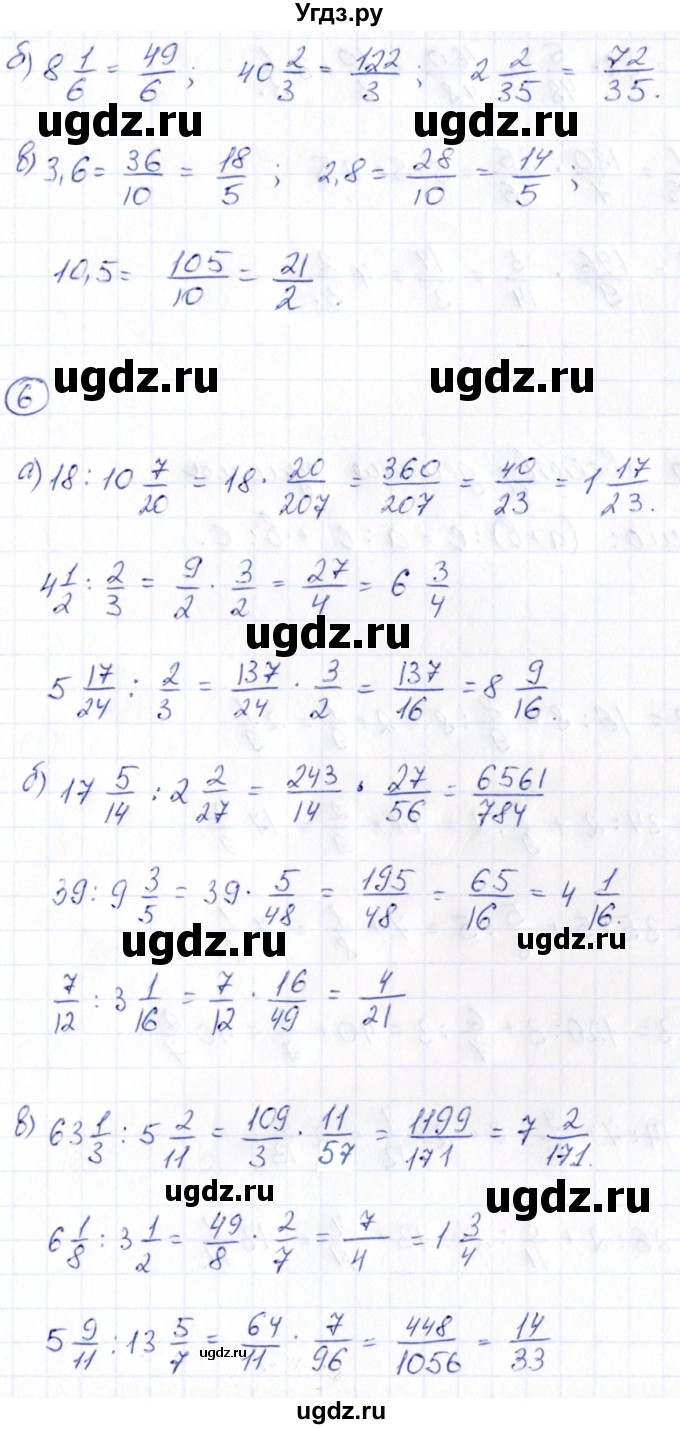 Угдз.ру
б) 8 1/6 = 49/6; 40 2/3 = 122/3; 2 2/35 = 72/35.
ugdz.ru ugdz.ru
в) 3,6 = 36/10 = 18/5; 2,8 = 28/10 = 14/5;
10,5 = 105/10 = 21/2.
ugdz.ru ugdz.ru
6
а) 18 : 10 7/20 = 18 · 20/207 = 360/207 = 40/23 = 1 17/23.
4 1/2 : 2/3 = 9/2 · 3/2 = 27/4 = 6 3/4
ugdz.ru
5 17/24 : 2/3 = 137/24 · 3/2 = 137/16 = 8 9/16.
б) 17 5/14 : 2 2/27 = 243/14 · 27/56 = 6561/784
39 : 9 3/5 = 39 · 5/48 = 195/48 = 65/16 = 4 1/16.
ugdz.ru ugdz.ru
7/12 : 3 1/16 = 7/12 · 16/49 = 4/21
в) 63 1/3 : 5 2/11 = 109/3 · 11/57 = 1199/171 = 7 2/171.
ugdz.ru ugdz.ru
6 1/8 : 3 1/2 = 49/8 · 2/7 = 7/4 = 1 3/4
5 9/11 : 13 5/7 = 64/11 · 7/96 = 448/1056 = 14/33
ugdz.ru
ugdz.ru